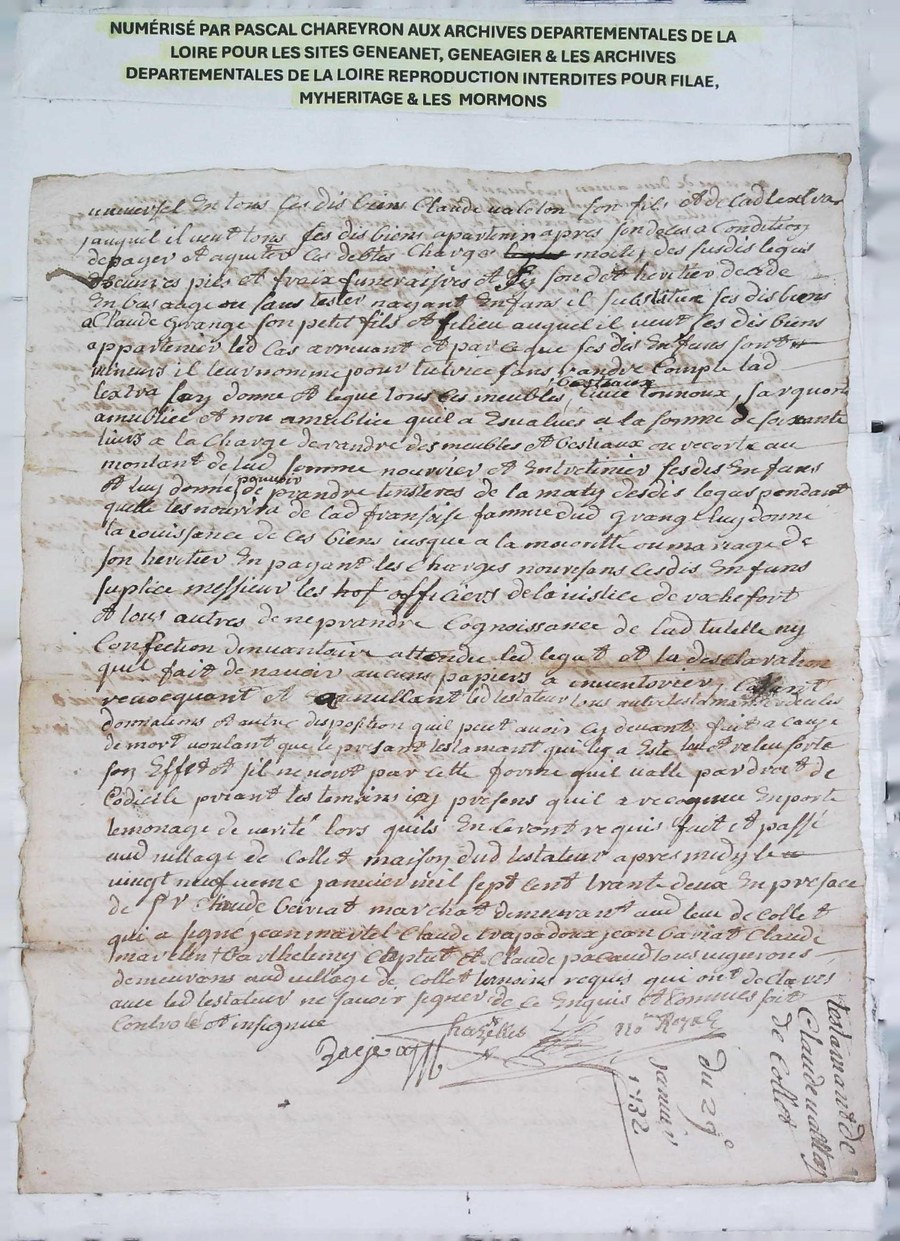 NUMÉRISÉ PAR PASCAL CHAREYRON AUX ARCHIVES DEPARTEMENTALES DE LA
LOIRE POUR LES SITES GENEANET, GENEAGIER & LES ARCHIVES
DEPARTEMENTALES DE LA LOIRE REPRODUCTION INTERDITES POUR FILAE,
MYHERITAGE & LES MORMONS
universel En tous ses dis biens Claude son fils et de lad
auquel il veut tous ses dis biens apartenir apres son deces a Condition
de payer et aquiter ses debtes Charges moitié des susdis legas
pies et fraix funeraires et sy sond et heritier decede
En bas aage ou sans tester nayant Enfans il substitue ses dis biens
a Claude Grange son petit fils et filieu auquel il veut ses dis biens
appartenir led Cas arrivant et parceque ses dis Enfans sont
mineurs il leur nomme pour tutrice sans randre Compte lad
donne et legue tous ses meubles, bestiaux
amublice et non amublice quil a Esvalués a la somme de soixante
livres a la Charge de randre des meubles et bestiaux ou recorte au
montant de lad somme nourrir et Entretenir sesdis Enfans
et luy donne pouvoir de prandre linteres de la desdis legas pendant
quelle les nourira de lad fransoise famme dud Grange luy donne
la jouissance de ces biens jusque a la maioritté ou mariage de
son heritier En payant les Charges nourrisans sesdis Enfans
suplice messieur les officiers de la justice de rochefort
et tous autres de ne prandre Cognoissance de lad tutelle ny
Confection dinvantoire attendu led legat et la desclaration
quil fait de navoir aucuns papiers a inventorier,
revocquant et annullant led testateur tous autres testamant
donnations et autre disposition quil peut avoir cy devant fait a cause
de mort voulant que le presant testamant qui luy a Esté leu et releu sorte
son Effet et sil ne peut par cette forme quil valle par droit de
Codicile priant les temoins icy presens quil a recognue En porte
temonage de verité lors quils En seront requis fait et passé
aud village de Collet maison dud testateur apres midy le
vingt neufvieme janvier mil sept cent trante deux En presance
de Sr Claude marchat demeurant aud lieu de Collet
qui a signé jean martel Claude trapadoux jean Claude
Barthelemy et Claude pacaud tous vignerons
demeurans aud village de Collet temoins requis qui ont declarés
avec led testateur ne savoir signer de ce Enquis et Sommés soit
Controlé et insignué
Royal
Testamant de
Claude
de Collet
du 29e
janvier
1732